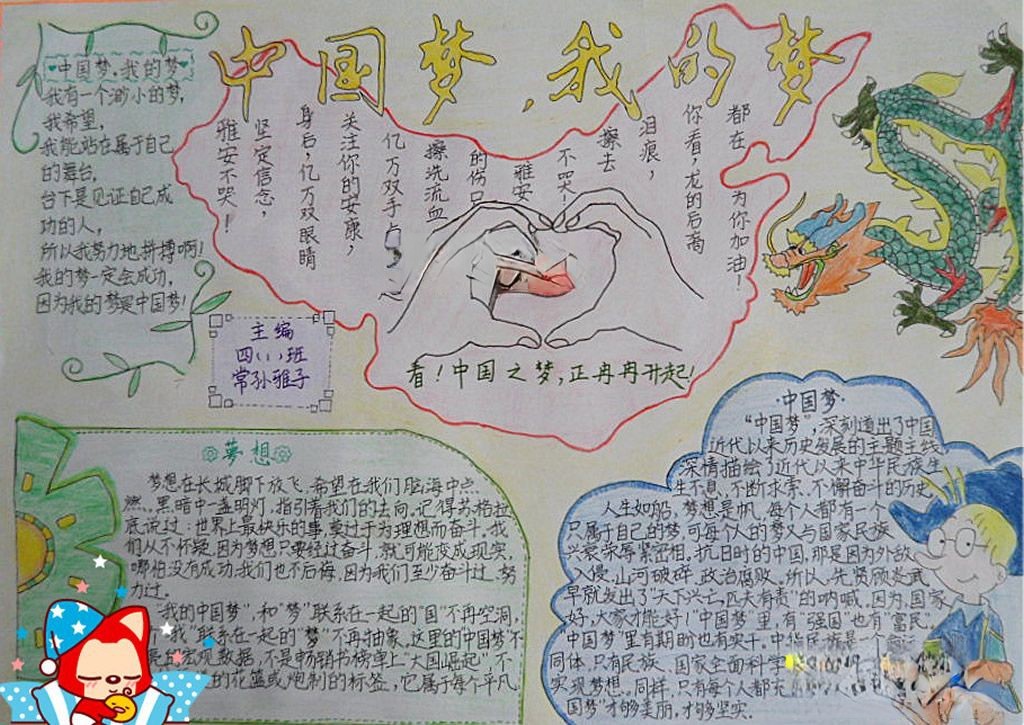 中国梦，我的梦
中国梫，我的梦
我有一个渺小的梦，
我希望，
我能站在属于自己
的舞台，
台下是见证自己成
功的人，
所以我努力地拼搏啊！
我的梦一定会成功，
因为我的梦是中国梦！
都在为你加油！
你看，龙的后裔
泪痕，
擦去
不哭！
雅安
的伤口
擦洗流血
亿万双手
关注你的安康，
身后，亿万双眼睛
坚定信念，
雅安不哭！
看！中国之梦，正冉冉升起！
主编
四(1)班
常孙雅子
夢想
梦想在长城脚下放飞，希望在我们脑海中点
燃。黑暗中一盏明灯，指引着我们的去向。记得苏格拉
底说过：世界上最快乐的事，莫过于为理想而奋斗。我
们从不怀疑，因为梦想只要经过奋斗，就可能变成现实，
哪怕没有成功，我们也不后悔，因为我们至少奋斗过、努
力过。
"我的中国梦"，和"梦"联系在一起的"国"不再空洞，
我"联系在一起的"梦"不再抽象。这里的中国梦"不
宏观数据，不是畅销书榜单上"大国崛起"，不
的花篮或炮制的标签，它属于每个平凡
中国梦
"中国梦"，深刻道出了中国
近代以来历史发展的主题主线，
深情描绘了近代以来中华民族生
生不息、不断求索、不懈奋斗的历史。
人生如船，梦想是帆。每个人都有一个
只属于自己的梦，可每个人的梦又与国家民族
兴衰荣辱紧密相。抗日时的中国，那是因为外敌
入侵，山河破碎，政治腐败。所以，先贤顾炎武
早就发出了"天下兴亡，匹夫有责"的呐喊。因为，国家
好，大家才能好！"中国梦"里，有"强国"也有"富民"。
中国梦"里有期盼也有实干。中华民族是一个命运
同体，只有民族、国家全面科学
实现梦想。同样，只有每个人都充
国梦"才够美丽，才够坚实。